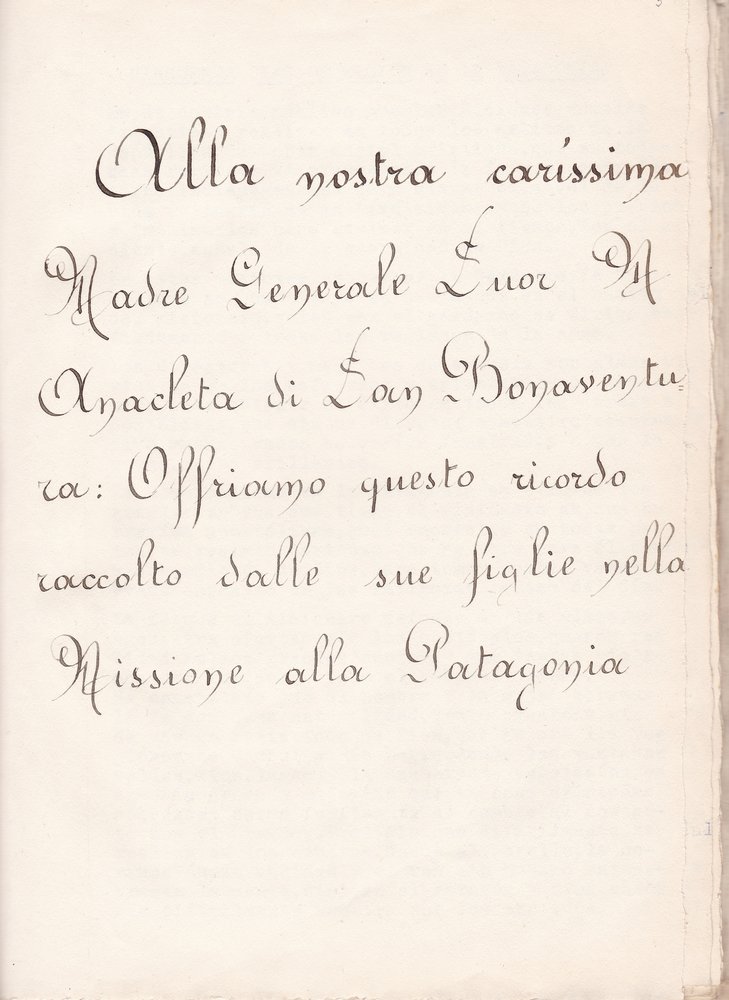 Alla nostra caríssima
Madre Generale Suor M
Anacleta di San Bonaventu=
ra: Offriamo questo ricordo
raccolto dalle sue figlie nella
Missione alla Patagonia